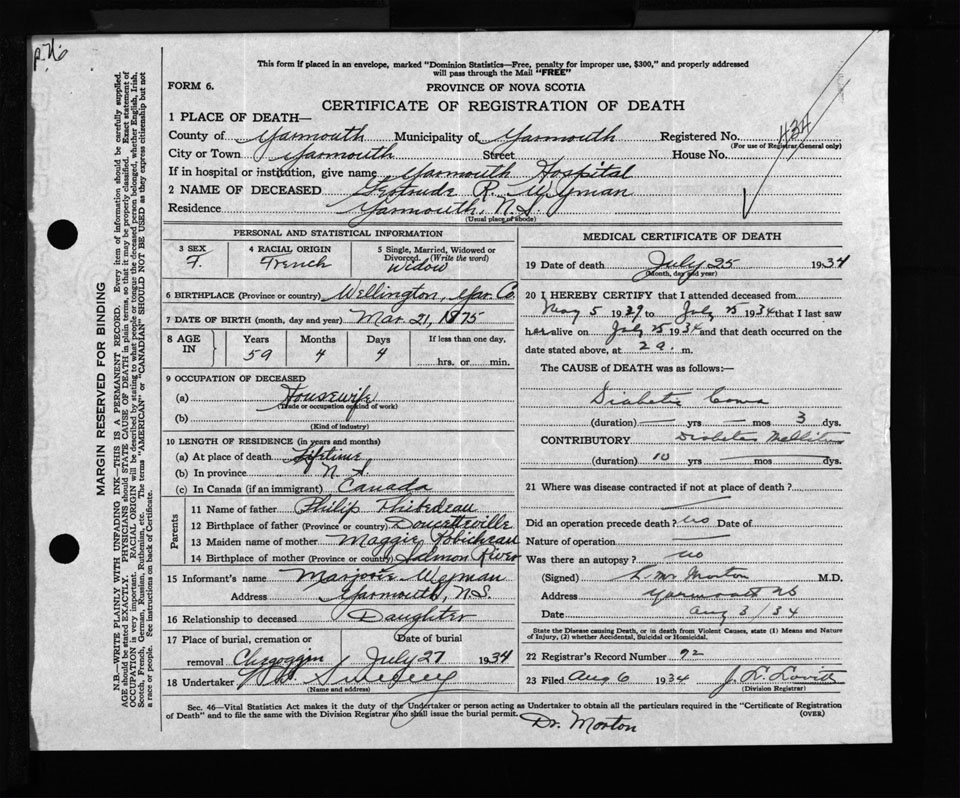 P.N.6
This form if placed in an envelope, marked "Dominion Statistics—Free, penalty for improper use, $300," and properly addressed
will pass through the Mail "FREE"
FORM 6.
PROVINCE OF NOVA SCOTIA
CERTIFICATE OF REGISTRATION OF DEATH
1 PLACE OF DEATH—
County of Yarmouth Municipality of Yarmouth Registered No. 434
(For use of Registrar General only)
City or Town Yarmouth Street House No.
If in hospital or institution, give name Yarmouth Hospital
2 NAME OF DECEASED Gertrude R. Wyman
Residence Yarmouth, N.S.
(Usual place of abode)
PERSONAL AND STATISTICAL INFORMATION
3 SEX F. 4 RACIAL ORIGIN French 5 Single, Married, Widowed or Divorced. (Write the word) Widow
6 BIRTHPLACE (Province or country) Wellington, Yar. Co.
7 DATE OF BIRTH (month, day and year) Mar. 21, 1875
8 AGE IN Years 59 Months 4 Days 4 If less than one day, hrs. or min.
9 OCCUPATION OF DECEASED
(a) Housewife
(Trade or occupation or kind of work)
(b)
(Kind of industry)
10 LENGTH OF RESIDENCE (in years and months)
(a) At place of death Lifetime
(b) In province N.S.
(c) In Canada (if an immigrant) Canada
Parents
11 Name of father Philip Thibedeau
12 Birthplace of father (Province or country) Doucetteville
13 Maiden name of mother Maggie Robicheau
14 Birthplace of mother (Province or country) Salmon River
15 Informant's name Marjorie Wyman
Address Yarmouth, N.S.
16 Relationship to deceased Daughter
17 Place of burial, cremation or Date of burial
removal Chegoggin July 27 1934
18 Undertaker Sweeny
(Name and address)
MEDICAL CERTIFICATE OF DEATH
19 Date of death July 25 1934
(Month, day and year)
20 I HEREBY CERTIFY that I attended deceased from
May 5 1929 to July 25 1934 that I last saw
her alive on July 25 1934 and that death occurred on the
date stated above, at 2 a. m.
The CAUSE of DEATH was as follows:—
Diabetic Coma
(duration) — yrs — mos 3 dys.
CONTRIBUTORY Diabetes Mellitus
(duration) 10 yrs — mos — dys.
21 Where was disease contracted if not at place of death?
—
Did an operation precede death? no Date of —
Nature of operation —
Was there an autopsy? no
(Signed) L. M. Morton M.D.
Address Yarmouth NS
Date Aug 3/34
State the Disease causing Death, or in death from Violent Causes, state (1) Means and Nature
of Injury, (2) whether Accidental, Suicidal or Homicidal.
22 Registrar's Record Number 92
23 Filed Aug 6 1934 J. L. Lovitt
(Division Registrar)
Sec. 46—Vital Statistics Act makes it the duty of the Undertaker or person acting as Undertaker to obtain all the particulars required in the "Certificate of Registration
of Death" and to file the same with the Division Registrar who shall issue the burial permit. (OVER)
Dr. Morton
MARGIN RESERVED FOR BINDING
N.B.—WRITE PLAINLY WITH UNFADING INK—THIS IS A PERMANENT RECORD. Every item of information should be carefully supplied.
AGE should be stated EXACTLY. PHYSICIANS should STATE CAUSE OF DEATH in plain terms, so that it may be properly classified. Exact statement of
OCCUPATION is very important. RACIAL ORIGIN will be described by stating to what people or tongue the deceased person belonged, whether English, Irish,
Scotch, French, German, Russian, Ruthenian, etc. The terms "AMERICAN" or "CANADIAN" SHOULD NOT BE USED as they express citizenship but not
a race or people. See instructions on back of Certificate.